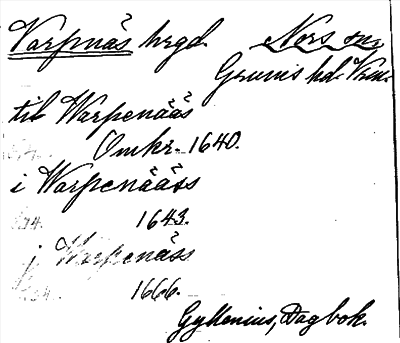 Varpnäs hrgd. Nors sn,
Grums hd. Vrm.
til Warpenääs
Omkr. 1640.
i Warpenääss
1643.
j Warpenäss
1666.
Gyllenius, Dagbok.